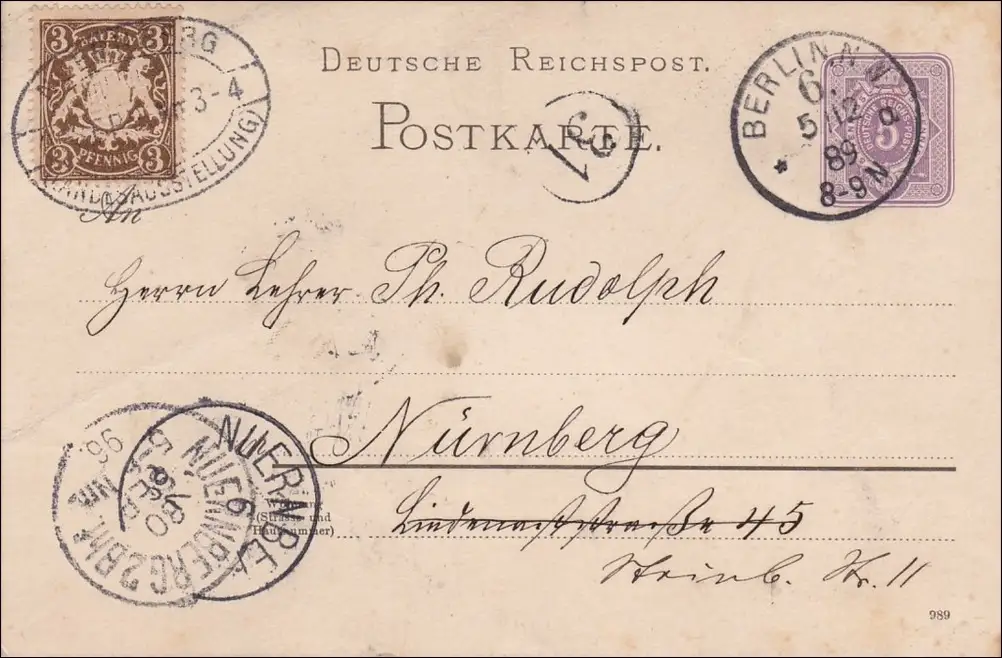 3 BAYERN 3
3 PFENNIG 3
3-4
(LANDESAUSSTELLUNG)
DEUTSCHE REICHSPOST.
POSTKARTE.
31
BERLIN N
5 12 89
8-9 N
DEUTSCHE REICHS-POST
5
An
Herrn Lehrer Ph. Rudolph
Nürnberg
(Strasse und
Hausnummer)
Lindenaststraße 45
Steinb. Str. 11
NUERNBERG
NUERNBERG 2 BHF
96
989